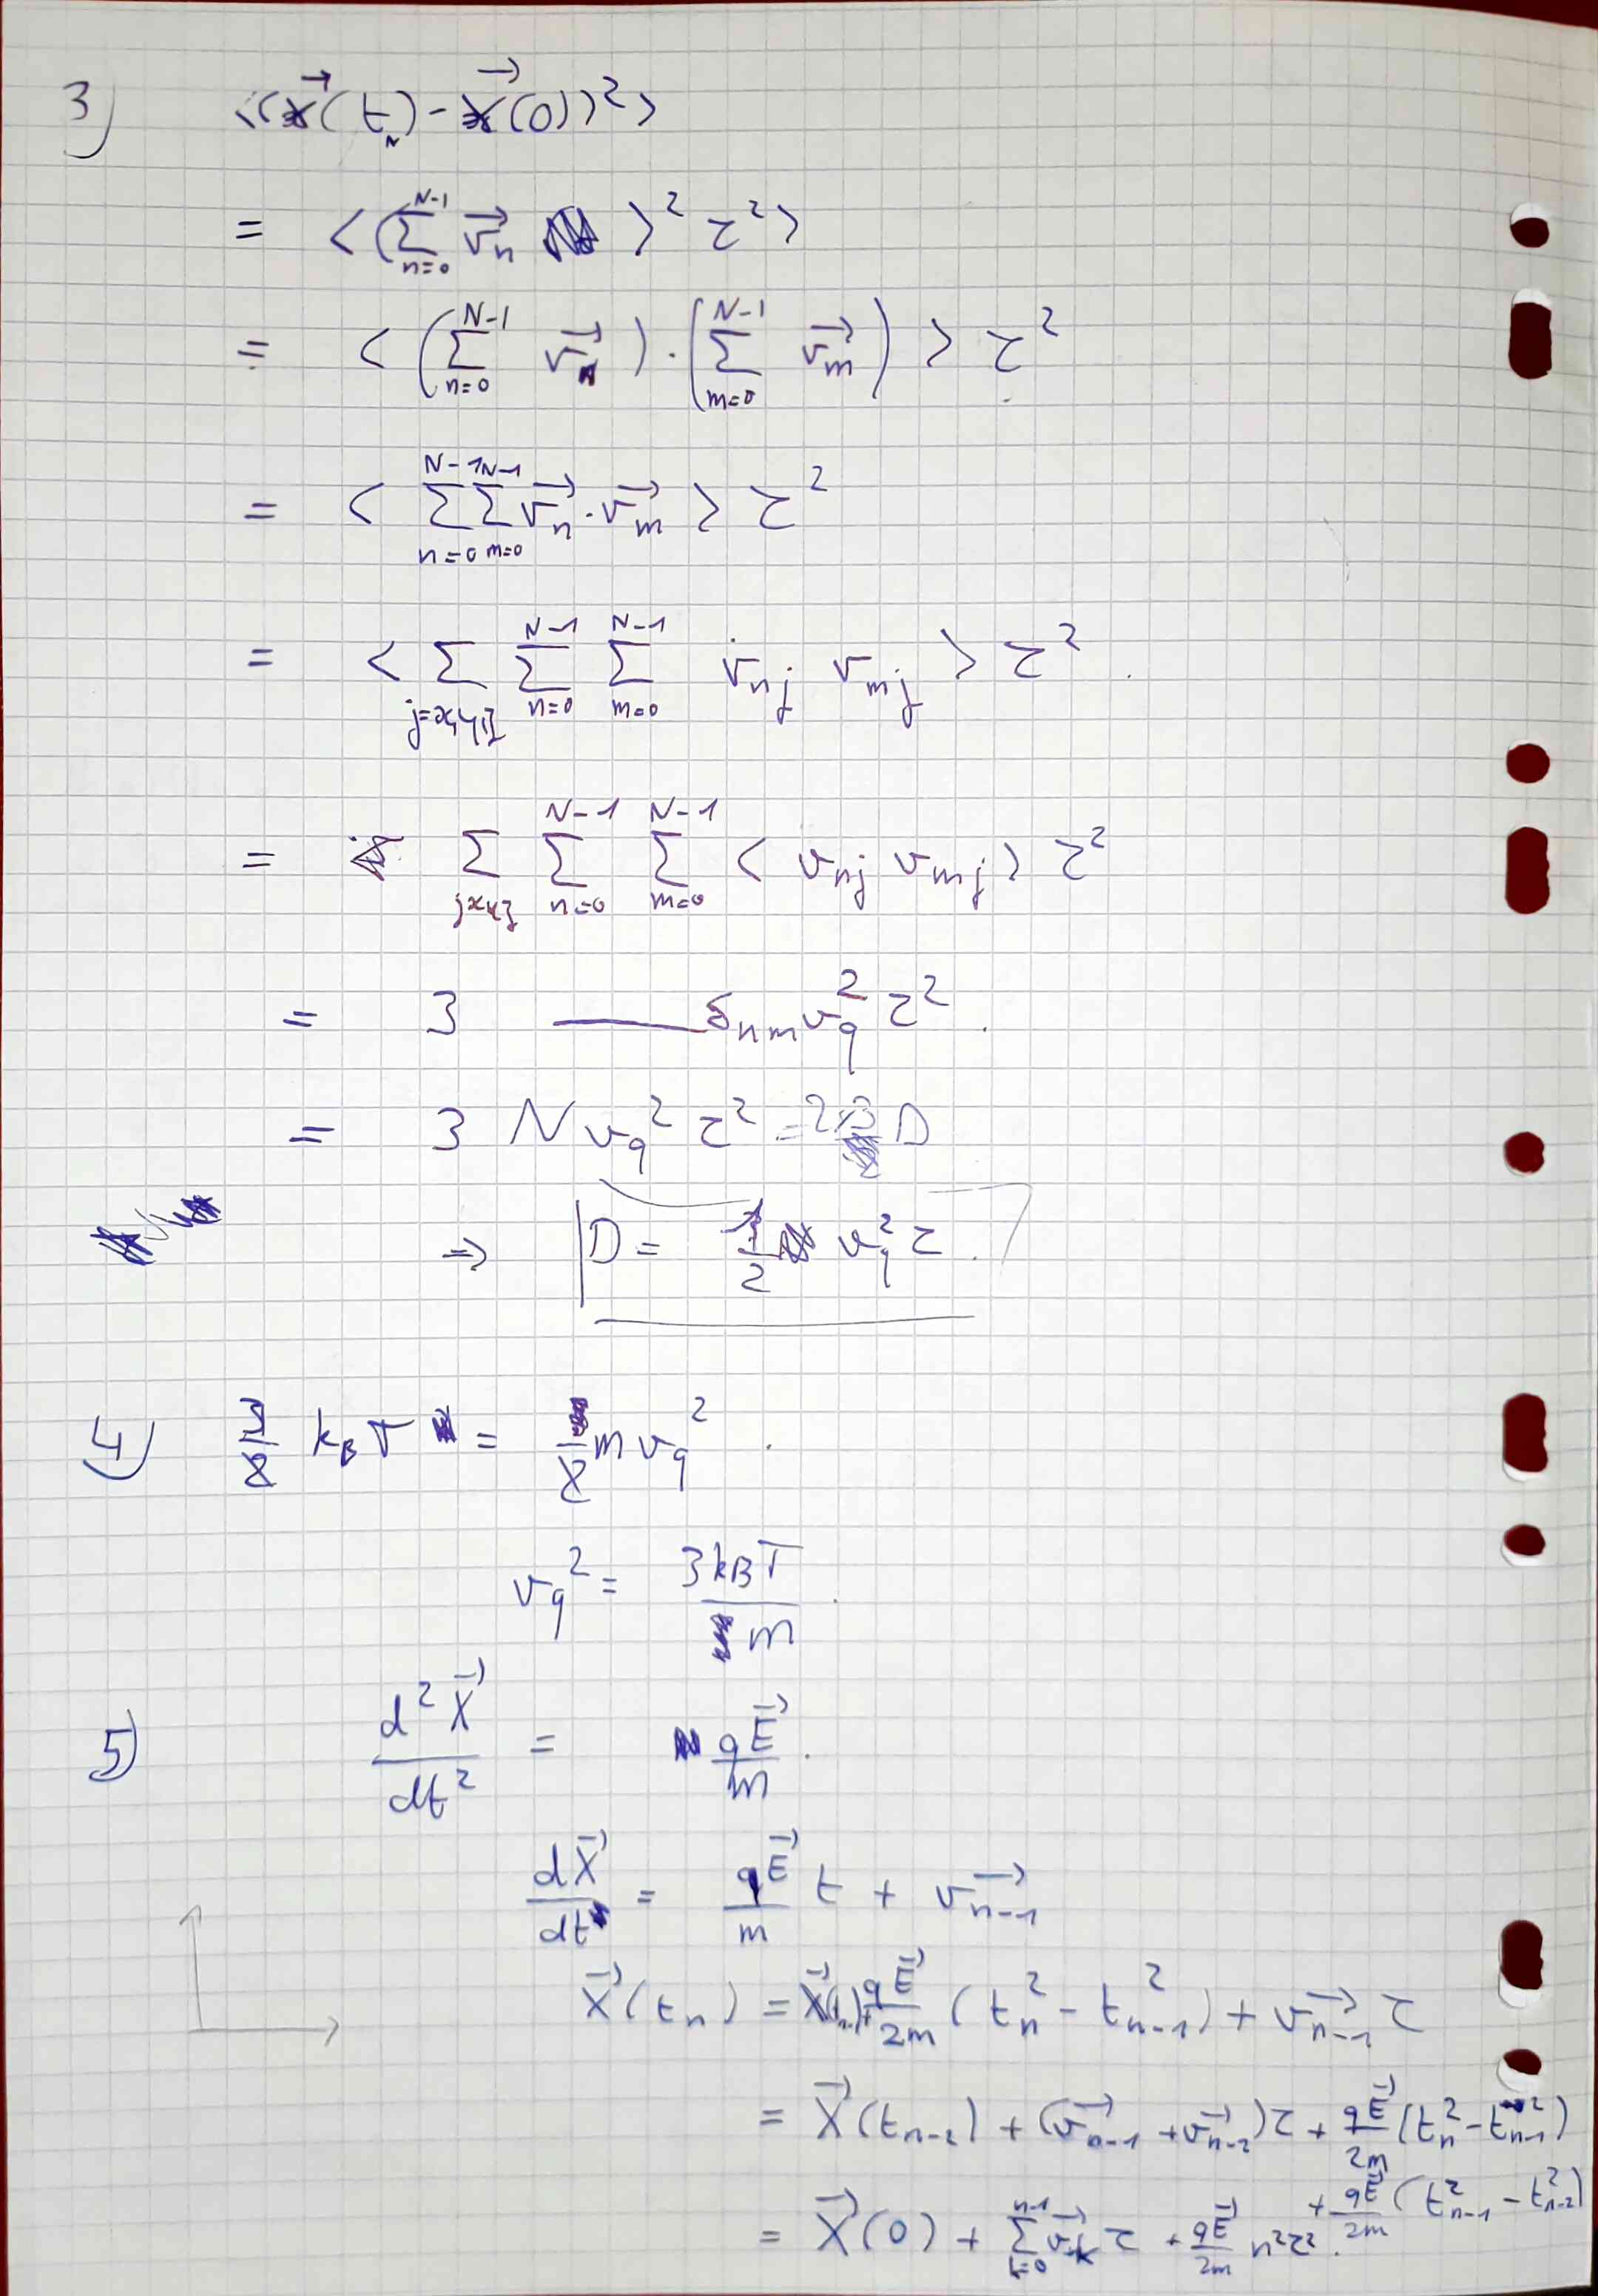 3) <(x⃗(t_N) - x⃗(0))²>
= <(∑_{n=0}^{N-1} v⃗_n )² τ²>
= < (∑_{n=0}^{N-1} v⃗_n) · (∑_{m=0}^{N-1} v⃗_m) > τ²
= < ∑_{n=0}^{N-1} ∑_{m=0}^{N-1} v⃗_n · v⃗_m > τ²
= < ∑_{j=x,y,z} ∑_{n=0}^{N-1} ∑_{m=0}^{N-1} v_{nj} v_{mj} > τ²
= ∑_{j=x,y,z} ∑_{n=0}^{N-1} ∑_{m=0}^{N-1} < v_{nj} v_{mj} > τ²
= 3 —— δ_{nm} v_q² τ²
= 3 N v_q² τ² = 2×3 D
⇒ D = 1/2 v_q² τ
4) 3/2 k_B T = 1/2 m v_q²
v_q² = 3 k_B T / m
5) d²X⃗/dt² = qE⃗/m
dX⃗/dt = qE⃗/m t + v⃗_{n-1}
X⃗(t_n) = X⃗( ) + qE⃗/2m (t_n² - t_{n-1}²) + v⃗_{n-1} τ
= X⃗(t_{n-2}) + (v⃗_{n-1} + v⃗_{n-2}) τ + qE⃗/2m (t_n² - t_{n-1}²)
+ qE⃗/2m (t_{n-1}² - t_{n-2}²)
= X⃗(0) + ∑_{k=0}^{n-1} v⃗_k τ + qE⃗/2m n²τ².